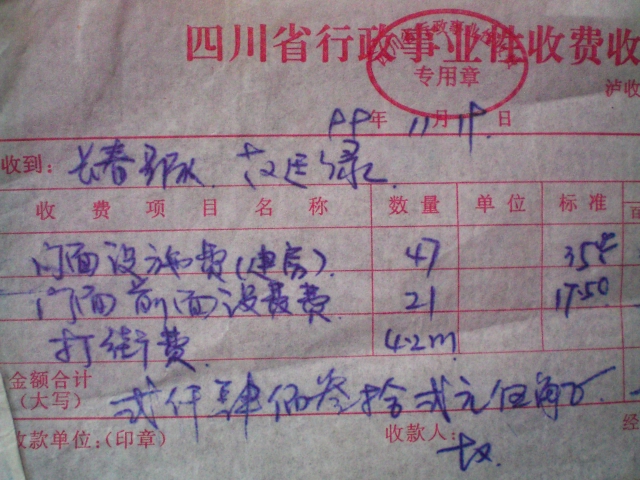 四川省行政事业性收费收
专用章
泸收
99年 11月19日
收到: 长春 队.
收费项目名称 数量 单位 标准
门面设施费(建房). 47 35
门面前面设 费 21 17.50
打街费 4.2m
金额合计
(大写) 弍仟肆佰叁拾弍元伍角
收款单位:(印章) 收款人: 经